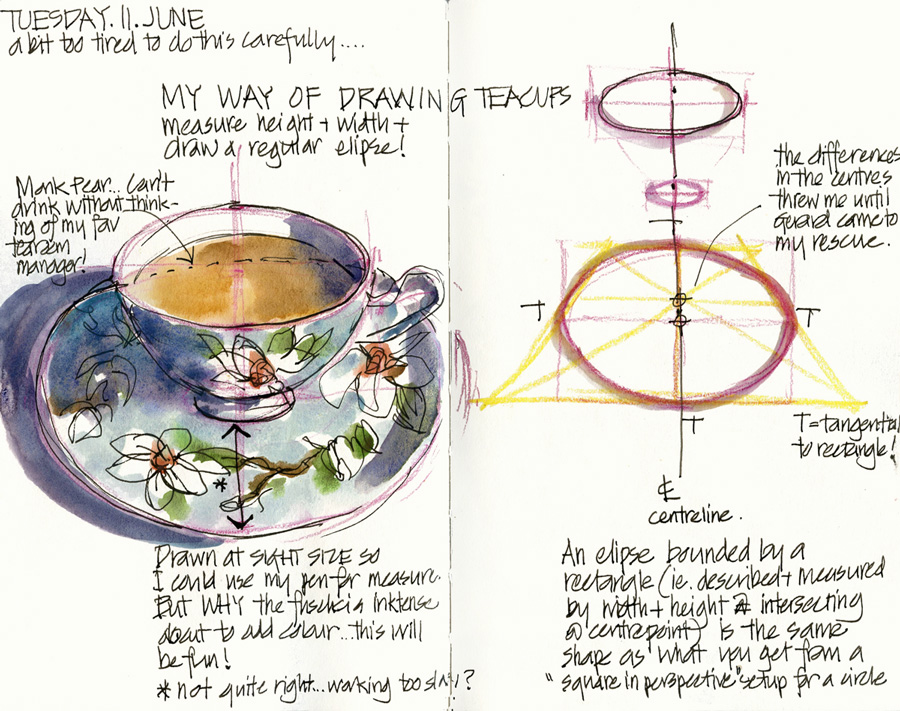 TUESDAY. 11. JUNE
a bit too tired to do this carefully....
MY WAY OF DRAWING TEACUPS
measure height + width +
draw a regular elipse!
Monk Pear... Can't
drink without think-
ing of my fav
tearoom
manager!
the differences
in the centres
threw me until
Gerard came to
my rescue.
T
T
T
T = tangential
to rectangle!
*
CL
centreline.
Drawn at SIGHT SIZE so
I could use my pen for measure.
But WHY the is Inktense
about to add colour...this will
be fun!
* not quite right...working too ?
An elipse bounded by a
rectangle (ie. described + measured
by width + height intersecting
@ centrepoint) is the same
shape as what you get from a
"square in perspective" setup for a circle